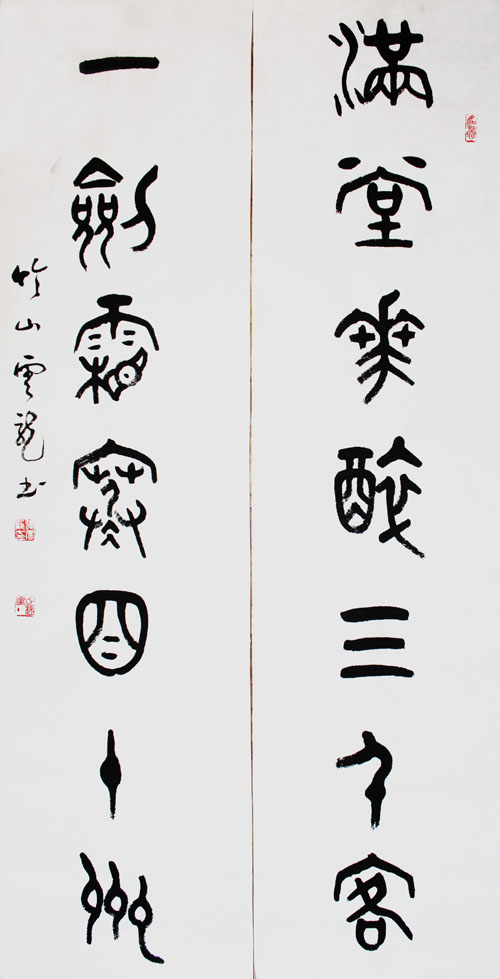 滿堂華醉三千客
一劍霜寒四十州
山雲龍书